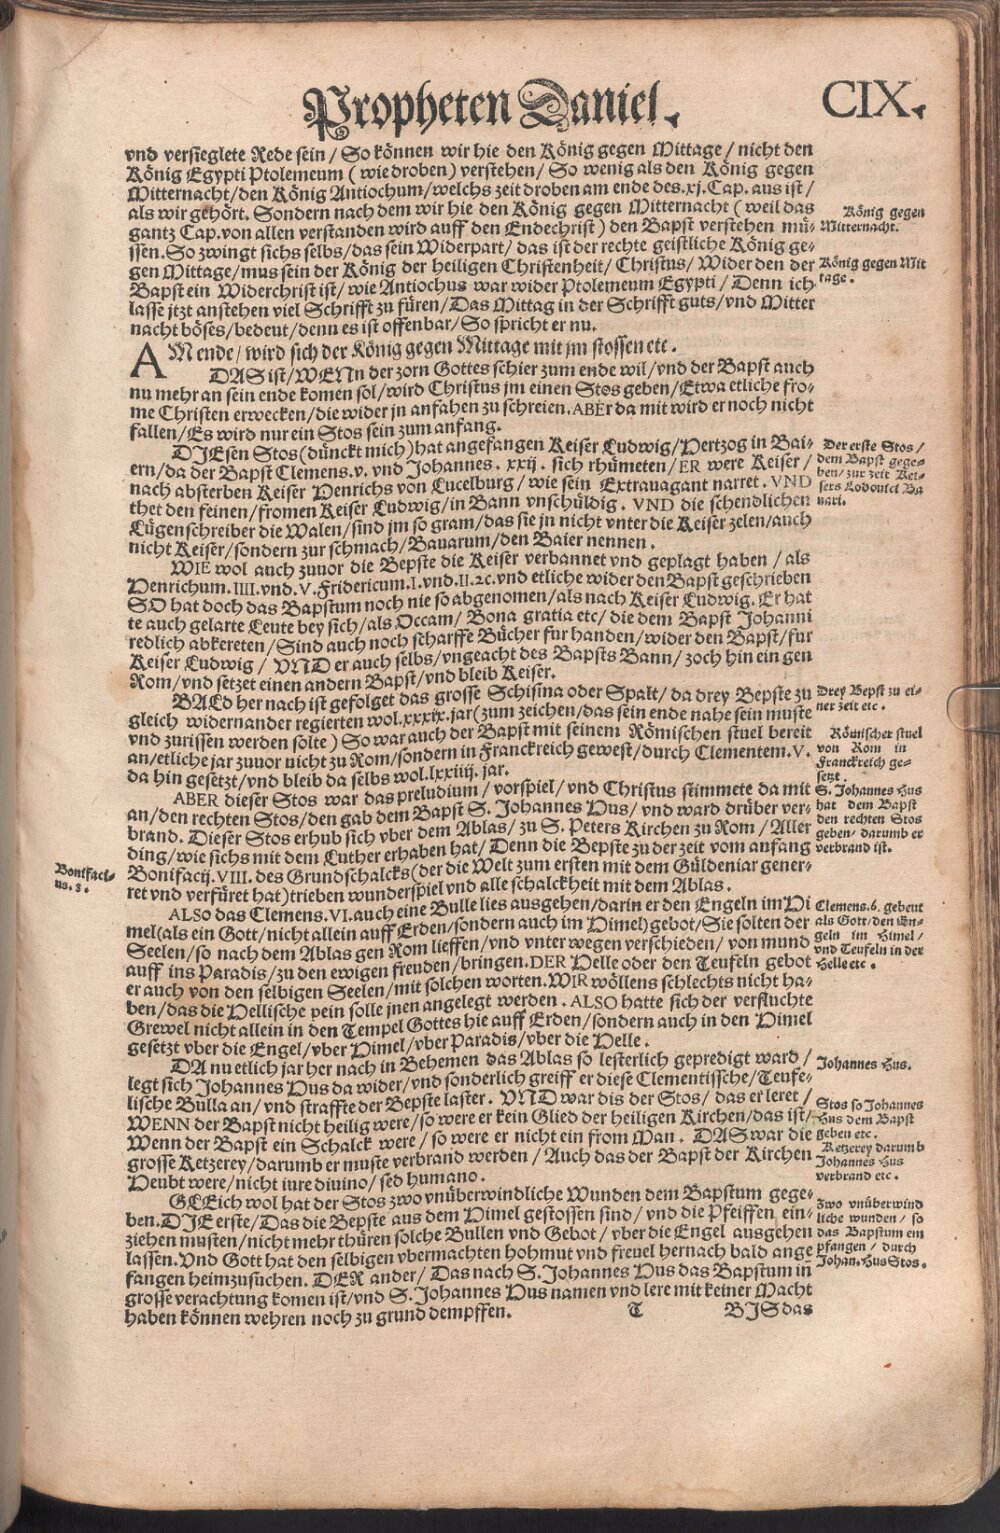 Propheten Daniel. CIX.
vnd versieglete Rede sein / So können wir hie den König gegen Mittage / nicht den
König Egypti Ptolemeum ( wie droben ) verstehen / So wenig als den König gegen
Mitternacht / den König Antiochum / welchs zeit droben am ende des .xj. Cap. aus ist /
als wir gehört. Sondern nach dem wir hie den König gegen Mitternacht ( weil das
gantz Cap. von allen verstanden wird auff den Endechrist ) den Bapst verstehen mü-
ssen. So zwingt sichs selbs / das sein Widerpart / das ist der rechte geistliche König ge-
gen Mittage / mus sein der König der heiligen Christenheit / Christus / Wider den der
Bapst ein Widerchrist ist / wie Antiochus war wider Ptolemeum Egypti / Denn ich
lasse jtzt anstehen viel Schrifft zu füren / Das Mittag in der Schrifft guts / vnd Mitter
nacht böses / bedeut / denn es ist offenbar / So spricht er nu.
König gegen
Mitternacht.
König gegen Mit
tage.
AM ende / wird sich der König gegen Mittage mit jm stossen etc.
DAS ist / WENn der zorn Gottes schier zum ende wil / vnd der Bapst auch
nu mehr an sein ende komen sol / wird Christus jm einen Stos geben / Etwa etliche fro-
me Christen erwecken / die wider jn anfahen zu schreien. ABEr da mit wird er noch nicht
fallen / Es wird nur ein Stos sein zum anfang.
DIEsen Stos (dünckt mich) hat angefangen Keiser Ludwig / Hertzog in Bai-
ern / da der Bapst Clemens. v. vnd Johannes. xxij. sich rhümeten / ER were Keiser /
nach absterben Keiser Henrichs von Lucelburg / wie sein Extrauagant narret. VND
thet den feinen / fromen Keiser Ludwig / in Bann vnschüldig. VND die schendlichen
Lügenschreiber die Walen / sind jm so gram / das sie jn nicht vnter die Keiser zelen / auch
nicht Keiser / sondern zur schmach / Bauarum / den Baier nennen.
Der erste Stos /
dem Bapst gege-
ben / zur zeit Kei-
sers Lodouici Ba
uari.
WIE wol auch zuuor die Bepste die Keiser verbannet vnd geplagt haben / als
Henrichum. IIII. vnd. V. Fridericum. I. vnd. II. ꝛc. vnd etliche wider den Bapst geschrieben
SO hat doch das Bapstum noch nie so abgenomen / als nach Keiser Ludwig. Er hat
te auch gelarte Leute bey sich / als Occam / Bona gratia etc / die dem Bapst Johanni
redlich abkereten / Sind auch noch scharffe Bücher fur handen / wider den Bapst / fur
Keiser Ludwig / VND er auch selbs / vngeacht des Bapsts Bann / zoch hin ein gen
Rom / vnd setzet einen andern Bapst / vnd bleib Keiser.
BALd her nach ist gefolget das grosse Schisma oder Spalt / da drey Bepste zu
gleich widernander regierten wol. xxxix. jar (zum zeichen / das sein ende nahe sein muste
vnd zurissen werden solte ) So war auch der Bapst mit seinem Römischen stuel bereit
an / etliche jar zuuor nicht zu Rom / sondern in Franckreich gewest / durch Clementem. V.
da hin gesetzt / vnd bleib da selbs wol. lxxiiij. jar.
Drey Bepst zu ei-
ner zeit etc.
Römischer stuel
von Rom in
Franckreich ge-
setzt.
ABER dieser Stos war das preludium / vorspiel / vnd Christus stimmete da mit
an / den rechten Stos / den gab dem Bapst S. Johannes Hus / vnd ward drüber ver-
brand. Dieser Stos erhub sich vber dem Ablas / zu S. Peters Kirchen zu Rom / Aller
ding / wie sichs mit dem Luther erhaben hat / Denn die Bepste zu der zeit vom anfang
Bonifacij. VIII. des Grundschalcks (der die Welt zum ersten mit dem Güldeniar gener-
ret vnd verfüret hat) trieben wunderspiel vnd alle schalckheit mit dem Ablas.
S. Johannes Hus
hat dem Bapst
den rechten Stos
geben / darumb er
verbrand ist.
Bonifaci-
us. 8.
ALSO das Clemens. VI. auch eine Bulle lies ausgehen / darin er den Engeln im Hi
mel (als ein Gott / nicht allein auff Erden / sondern auch im Himel) gebot / Sie solten der
Seelen / so nach dem Ablas gen Rom lieffen / vnd vnter wegen verschieden / von mund
auff ins Paradis / zu den ewigen freuden / bringen. DER Helle oder den Teufeln gebot
er auch von den selbigen Seelen / mit solchen worten. WIR wöllens schlechts nicht ha-
ben / das die Hellische pein solle jnen angelegt werden. ALSO hatte sich der verfluchte
Grewel nicht allein in den Tempel Gottes hie auff Erden / sondern auch in den Himel
gesetzt vber die Engel / vber Himel / vber Paradis / vber die Helle.
Clemens. 6. gebeut
als Gott / den En-
geln im Himel /
vnd Teufeln in der
Helle etc.
DA nu etlich jar her nach in Behemen das Ablas so lesterlich gepredigt ward /
legt sich Johannes Hus da wider / vnd sonderlich greiff er diese Clementissche / Teufe-
lische Bulla an / vnd straffte der Bepste laster. VND war dis der Stos / das er leret /
WENN der Bapst nicht heilig were / so were er kein Glied der heiligen Kirchen / das ist /
Wenn der Bapst ein Schalck were / so were er nicht ein from Man. DAS war die
grosse Ketzerey / darumb er muste verbrand werden / Auch das der Bapst der Kirchen
Heubt were / nicht iure diuino / sed humano.
Johannes Hus.
Stos so Johannes
Hus dem Bapst
geben etc.
Ketzerey darumb
Johannes Hus
verbrand etc.
GLEich wol hat der Stos zwo vnüberwindliche Wunden dem Bapstum gege-
ben. DIE erste / Das die Bepste aus dem Himel gestossen sind / vnd die Pfeiffen ein-
ziehen musten / nicht mehr thüren solche Bullen vnd Gebot / vber die Engel ausgehen
lassen. Vnd Gott hat den selbigen vbermachten hohmut vnd freuel hernach bald ange
fangen heimzusuchen. DER ander / Das nach S. Johannes Hus das Bapstum in
grosse verachtung komen ist / vnd S. Johannes Hus namen vnd lere mit keiner Macht
haben können wehren noch zu grund dempffen.
Zwo vnüberwind
liche wunden / so
das Bapstum em
pfangen / durch
Johan. Hus Stos.
T BIS das